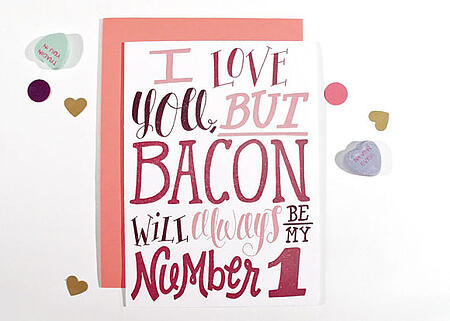 I LOVE
You, BUT
BACON
WiLL always BE MY
NuMBER 1